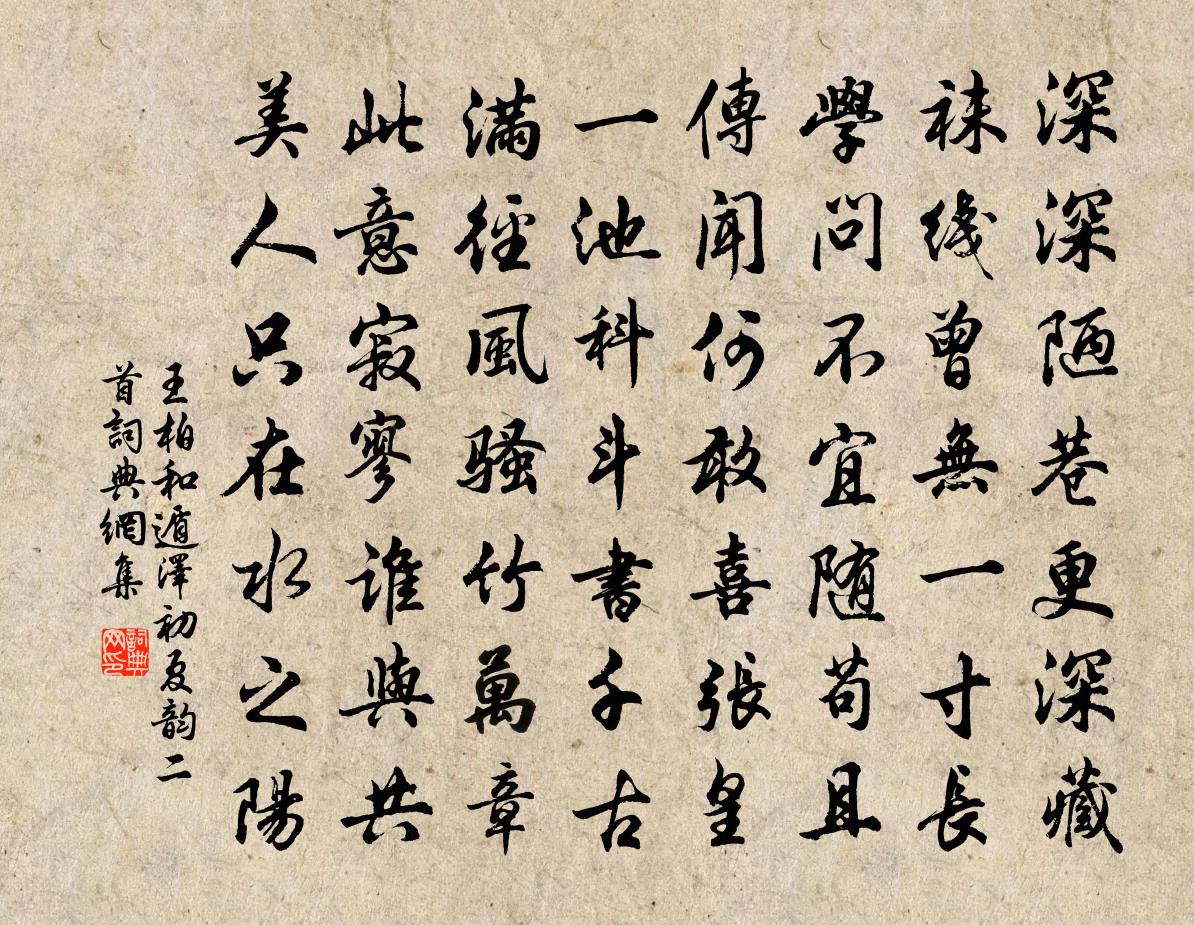 深深陋巷更深藏
襪綫曾無一寸長
學問不宜随苟且
傳聞何敢喜張皇
一池科斗書千古
滿徑風騷竹萬章
此意寂寥誰與共
美人只在水之陽
王柏和遁澤初夏韵二
首詞典網集
詞典网印